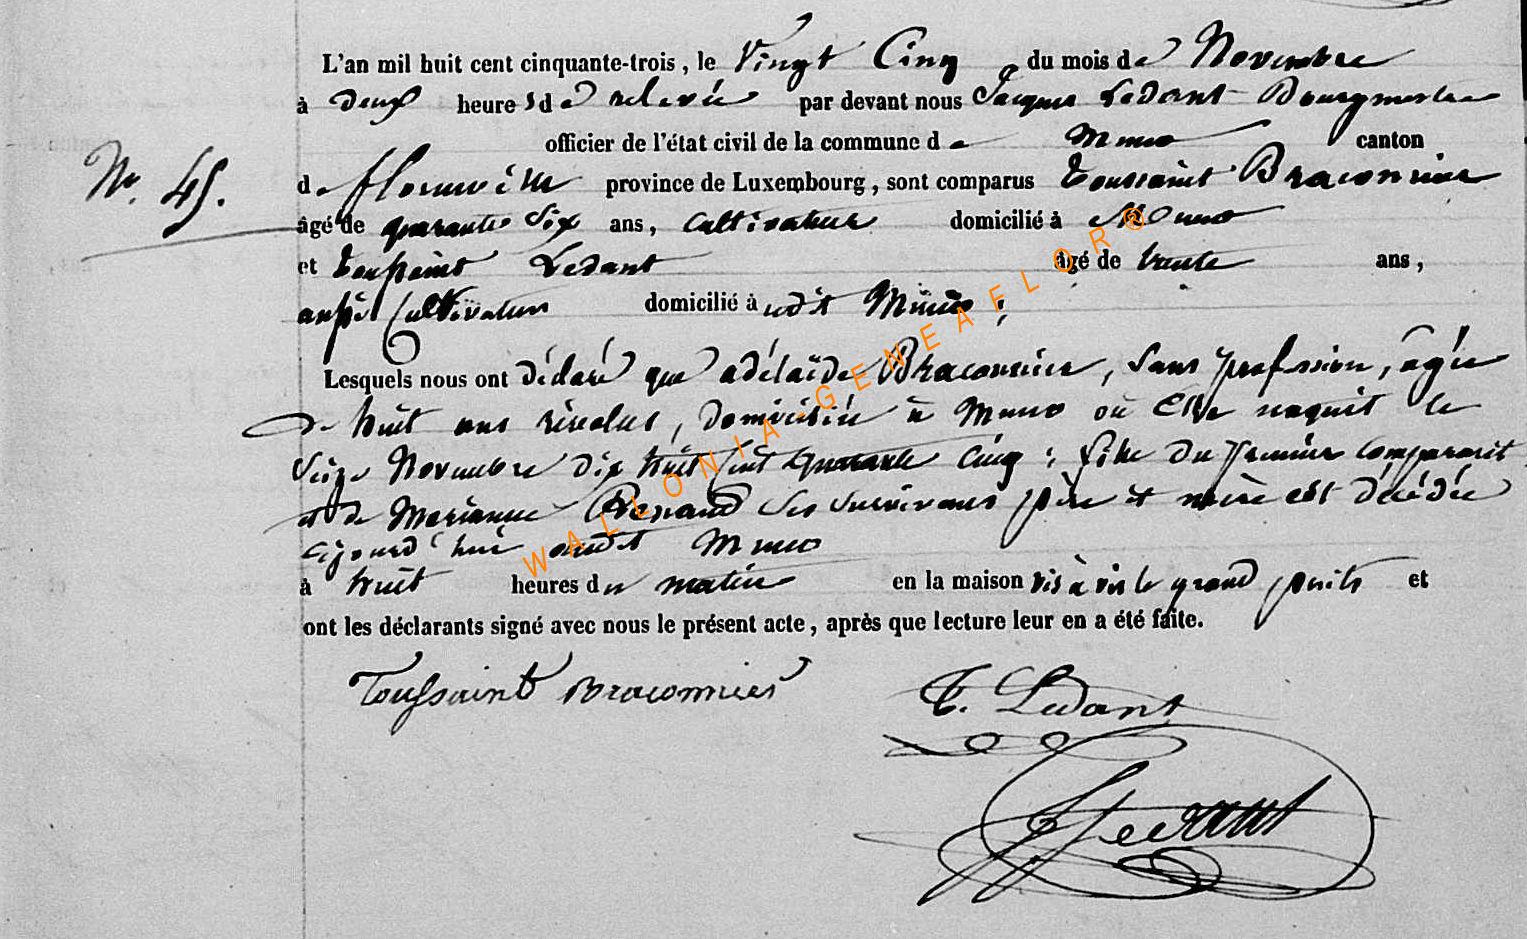 L'an mil huit cent cinquante-trois, le Vingt Cinq du mois de Novembre
à deux heures de relevée par devant nous Jacques Ledant Bourgmestre
officier de l'état civil de la commune de Muno canton
N°. 45. de florenville province de Luxembourg, sont comparus Toussaint Braconnier
âgé de quarante Six ans, Cultivateur domicilié à Muno
et Toussaint Ledant âgé de trente ans,
aussi Cultivateur domicilié à udit Muno;
Lesquels nous ont déclaré que adélaïde Braconnier, Sans profession, agée
de huit ans révolus, domiciliée à Muno où Elle naquit le
Seize Novembre dix huit Cent quarante Cinq; fille du premier comparant
et de Marianne Renaud Ses survivans père et mère est décédée
aujourd'hui audit Muno
à huit heures du matin en la maison vis à vis le grand puits et
ont les déclarants signé avec nous le présent acte, après que lecture leur en a été faite.
Toussaint Braconnier T. Ledant
J Ledant
WALLONIA-GENEAFLOR®